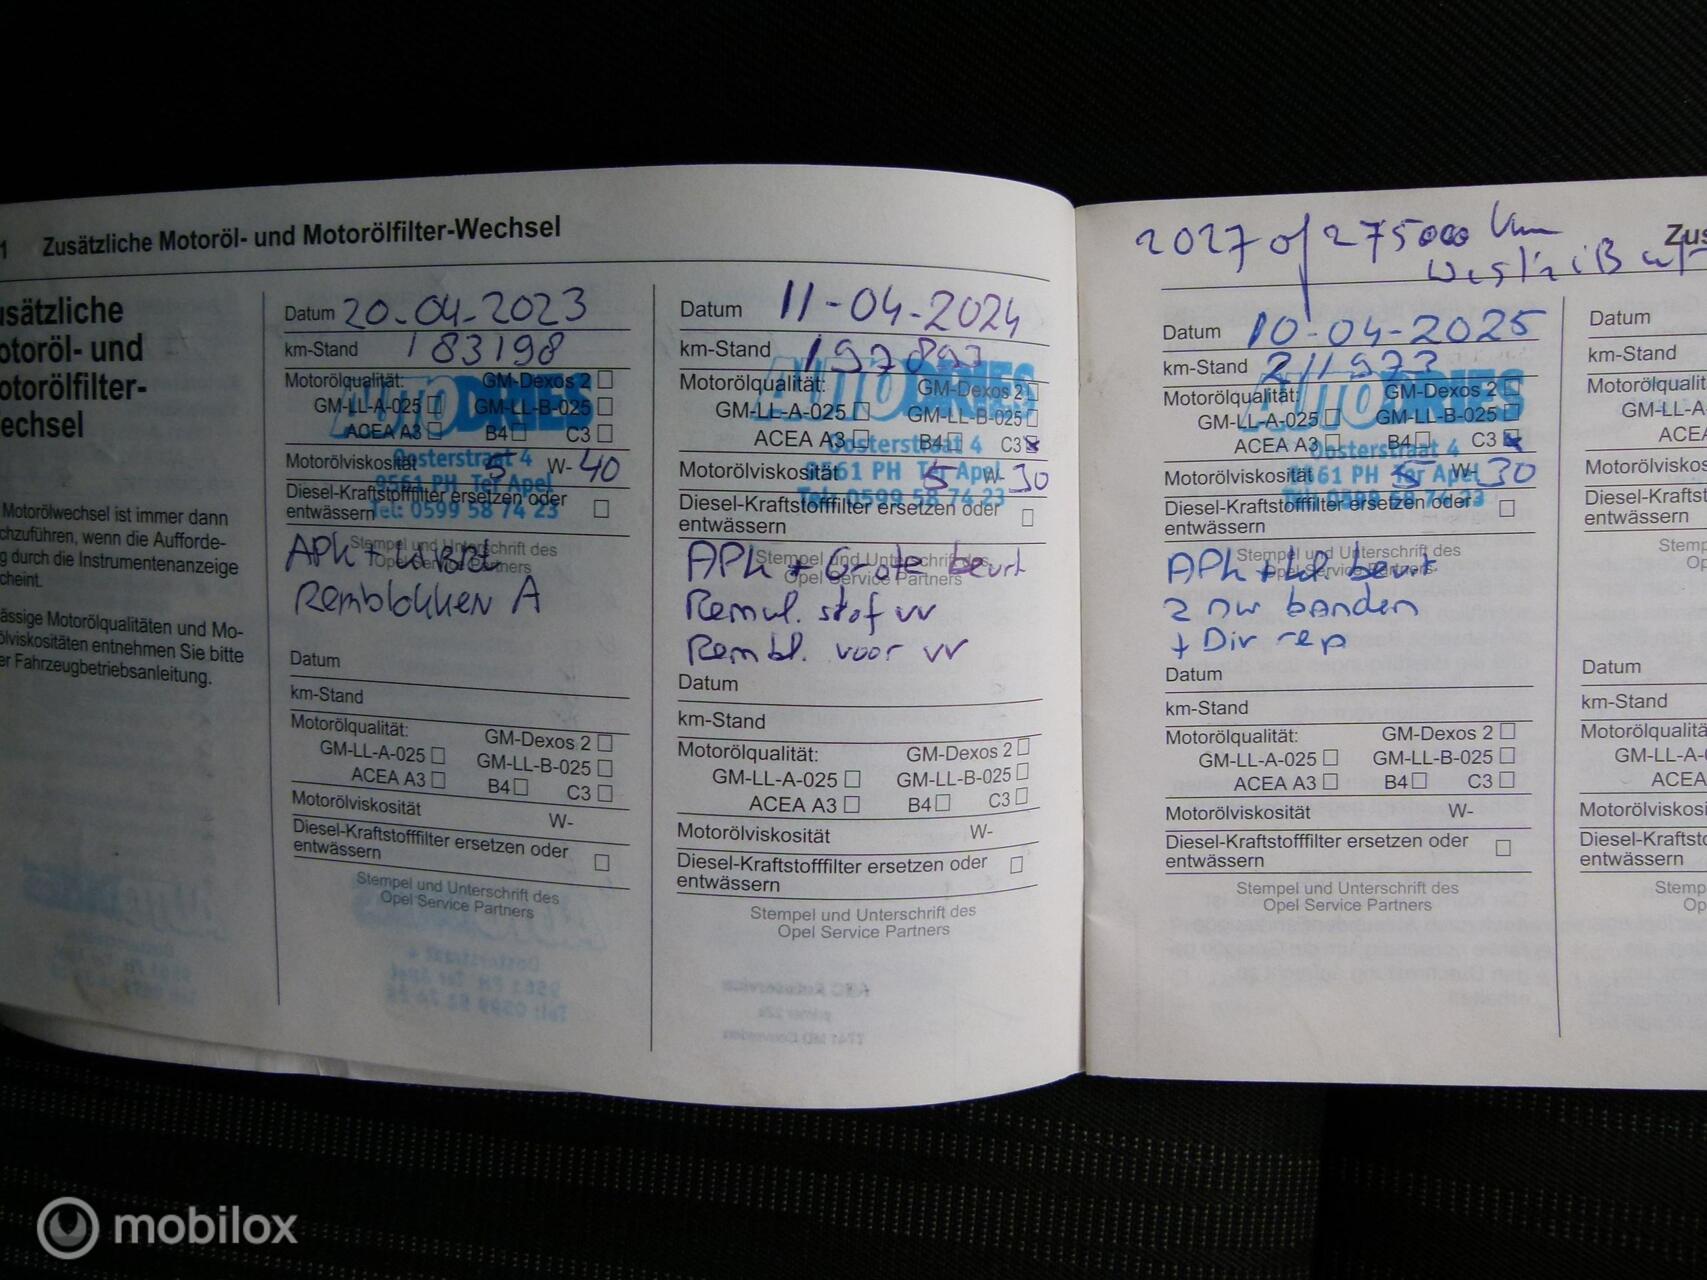 1 Zusätzliche Motoröl- und Motorölfilter-Wechsel
usätzliche
otoröl- und
otorölfilter-
echsel
Motorölwechsel ist immer dann
chzuführen, wenn die Aufforde-
g durch die Instrumentenanzeige
cheint.
ässige Motorölqualitäten und Mo-
ölviskositäten entnehmen Sie bitte
er Fahrzeugbetriebsanleitung.
Datum 20-04-2023
km-Stand 183198
Motorölqualität: GM-Dexos 2
GM-LL-A-025 GM-LL-B-025
ACEA A3 B4 C3
AUTO DRIES
Motorölviskosität 5 W- 40
Oosterstraat 4
9561 PH Ter Apel
Diesel-Kraftstofffilter ersetzen oder
entwässern
Tel: 0599 58 74 23
Stempel und Unterschrift des
Opel Service Partners
APK +
Remblokken A
Datum
km-Stand
Motorölqualität: GM-Dexos 2
GM-LL-A-025 GM-LL-B-025
ACEA A3 B4 C3
Motorölviskosität W-
Diesel-Kraftstofffilter ersetzen oder
entwässern
Stempel und Unterschrift des
Opel Service Partners
Datum 11-04-2024
km-Stand 197893
Motorölqualität: GM-Dexos 2
GM-LL-A-025 GM-LL-B-025
ACEA A3 B4 C3
AUTO DRIES
Oosterstraat 4
Motorölviskosität 5 W- 30
9561 PH Ter Apel
Tel: 0599 58 74 23
Diesel-Kraftstofffilter ersetzen oder
entwässern
Stempel und Unterschrift des
Opel Service Partners
APK + Grote beurt
Remvl. stof vv
Rembl. voor vv
Datum
km-Stand
Motorölqualität: GM-Dexos 2
GM-LL-A-025 GM-LL-B-025
ACEA A3 B4 C3
Motorölviskosität W-
Diesel-Kraftstofffilter ersetzen oder
entwässern
Stempel und Unterschrift des
Opel Service Partners
2027 of 275000 km
Zus
Datum 10-04-2025
km-Stand 211973
Motorölqualität: GM-Dexos 2
GM-LL-A-025 GM-LL-B-025
ACEA A3 B4 C3
AUTO DRIES
Oosterstraat 4
Motorölviskosität 5 W- 30
9561 PH Ter Apel
0599 58 74 23
Diesel-Kraftstofffilter ersetzen oder
entwässern
Stempel und Unterschrift des
Opel Service Partners
APK + kl. beurt
2 nw banden
+ Div rep
Datum
km-Stand
Motorölqualität: GM-Dexos 2
GM-LL-A-025 GM-LL-B-025
ACEA A3 B4 C3
Motorölviskosität W-
Diesel-Kraftstofffilter ersetzen oder
entwässern
Stempel und Unterschrift des
Opel Service Partners
Datum
km-Stand
Motorölqualit
GM-LL-A
ACEA
Motorölviskos
Diesel-Kraftsto
entwässern
Stemp
Op
Datum
km-Stand
Motorölqualitä
GM-LL-A-
ACEA
Motorölviskosi
Diesel-Kraftsto
entwässern
Stemp
Op
mobilox